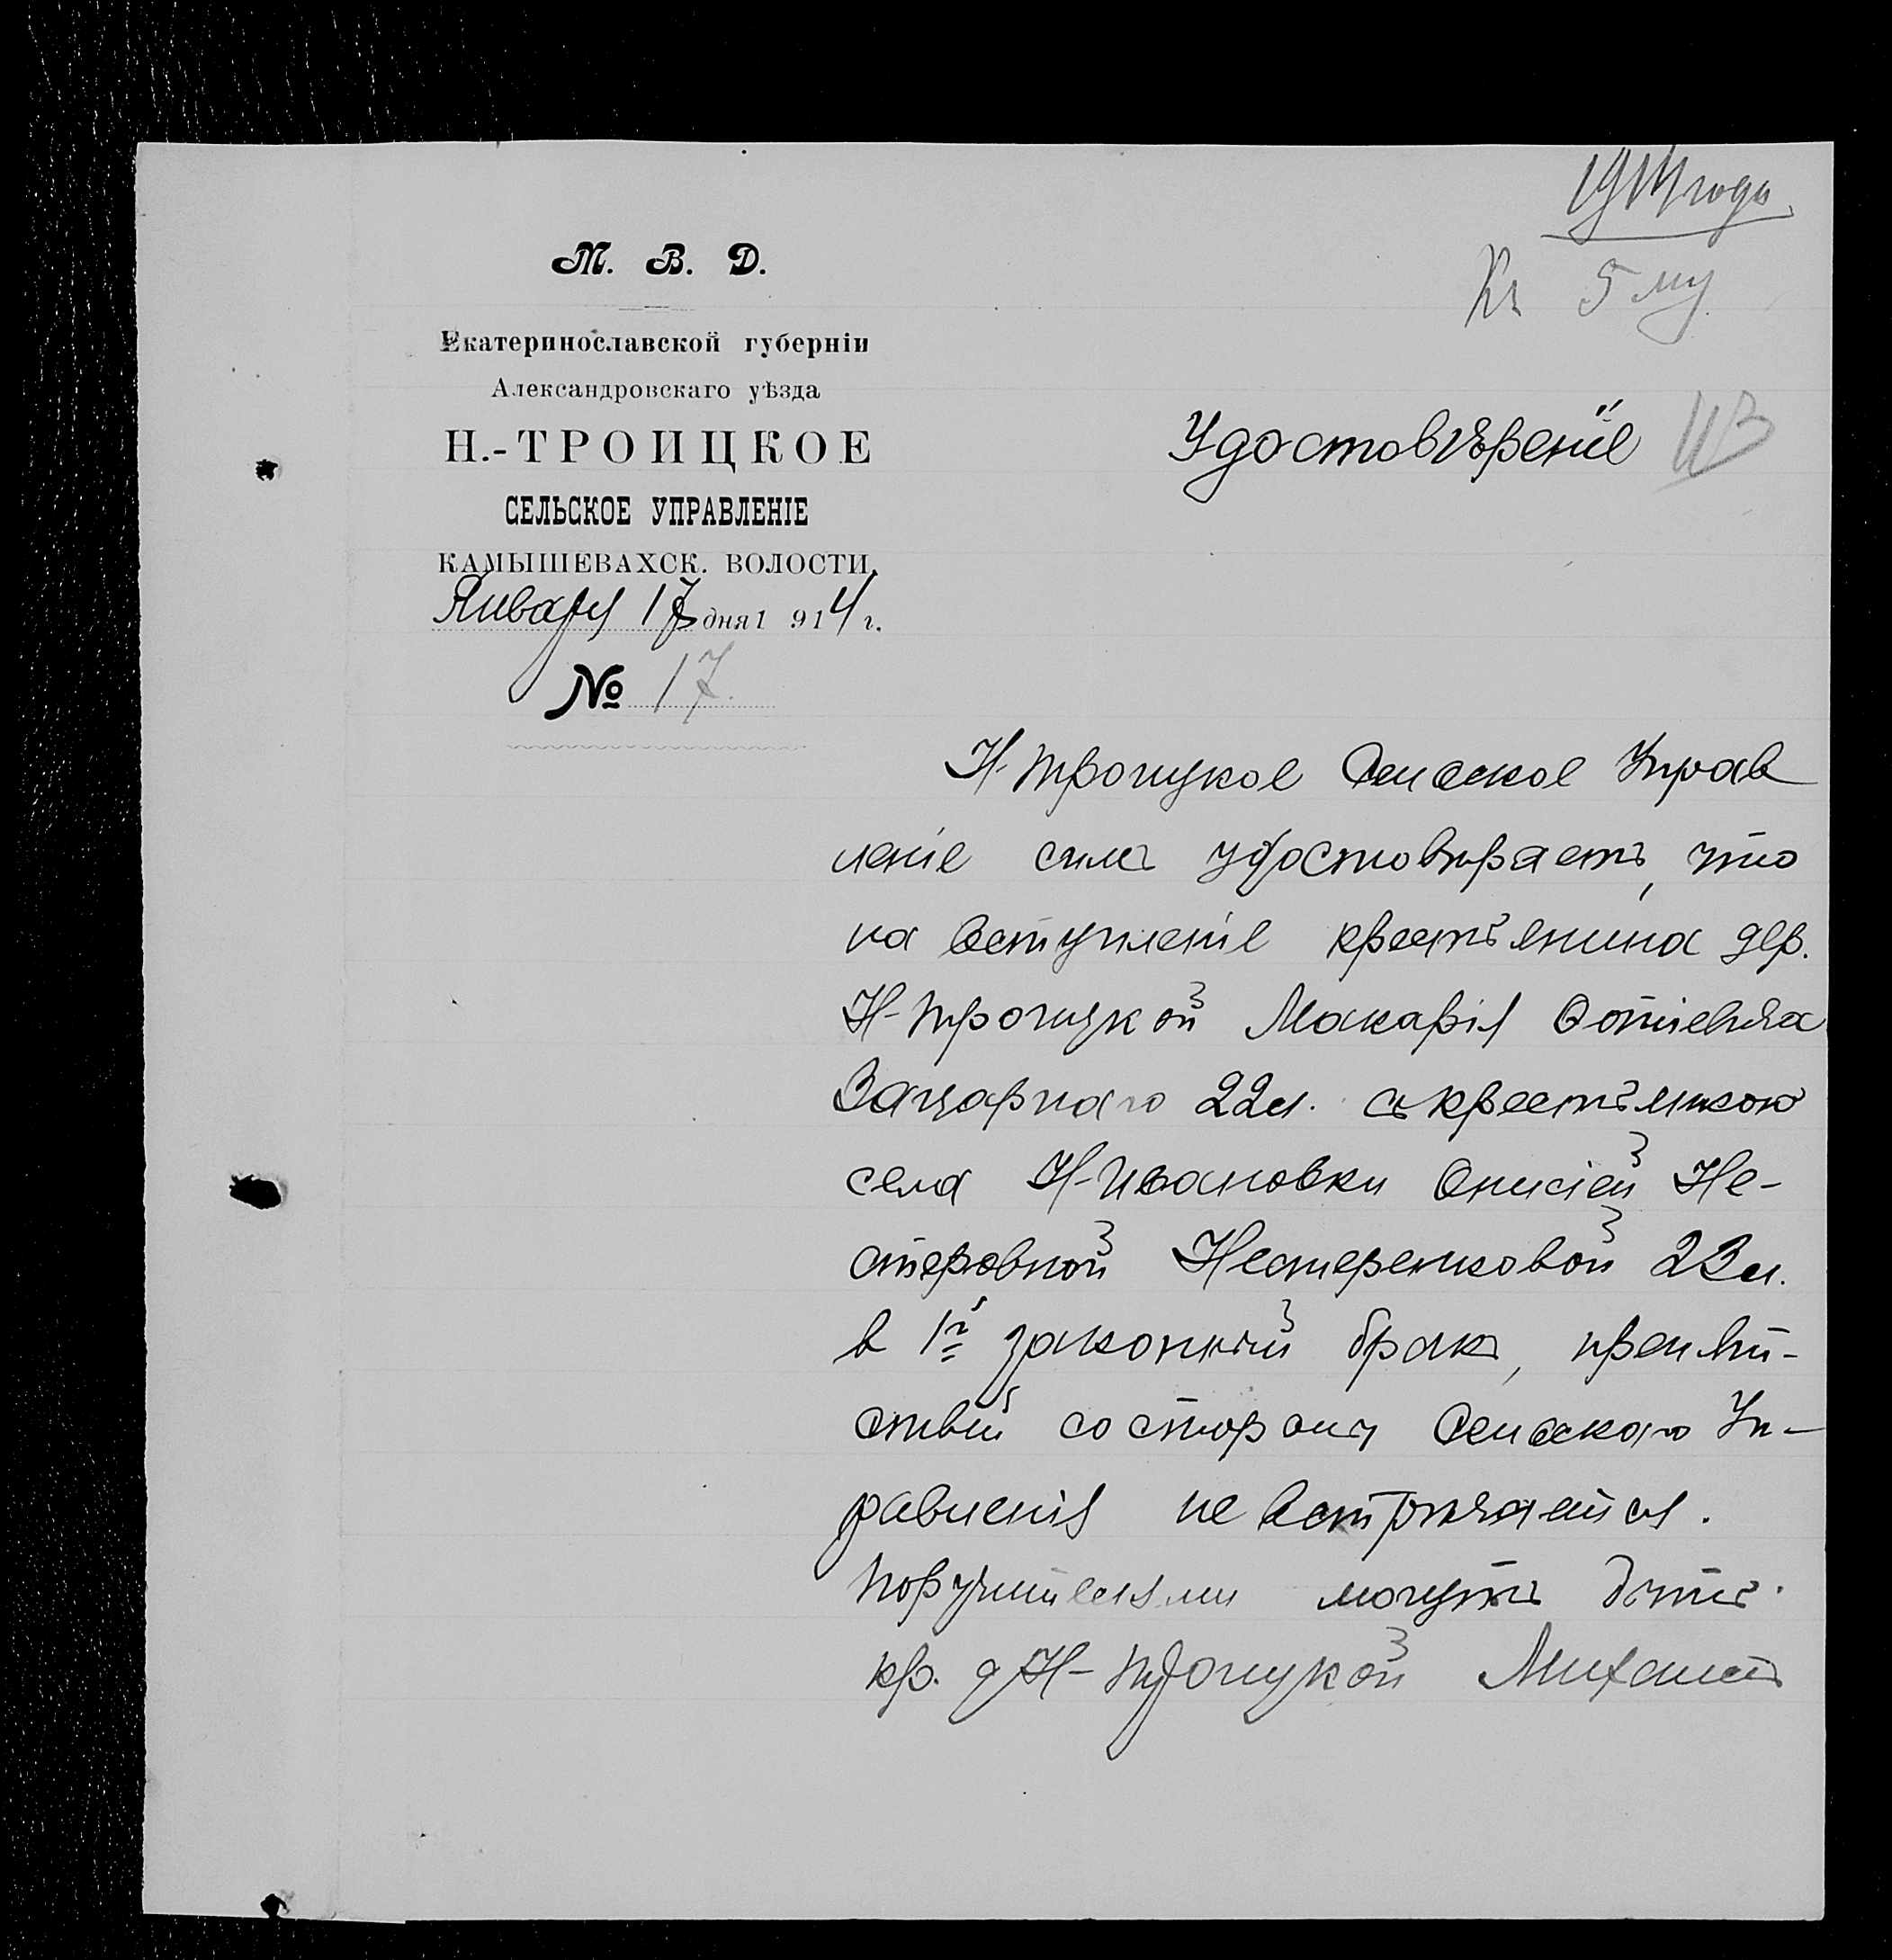 1914 года
Къ 5 му
М. В. Д.
Екатеринославской губерніи
Александровскаго уѣзда
Н.-ТРОИЦКОЕ
СЕЛЬСКОЕ УПРАВЛЕНІЕ
КАМЫШЕВАХСК. ВОЛОСТИ.
Января 17 дня 1914 г.
№ 17.
Удостовѣреніе
Н-Троицкое Сельское Управ
леніе симъ удостовѣряетъ, что
на вступленіе крестьянина дер.
Н-Троицкой Макарія Фотіевича
Зацарнаго 22 л. съ крестьянкою
села Н-Ивановки Анисіей Не-
стеровной Нестеренковой 23 л.
в 1й законный бракъ, препят-
ствій со стороны Сельскаго Уп-
равленія не встрѣчается.
Поручителями могутъ быть
кр. д Н-Троицкой Михаилъ